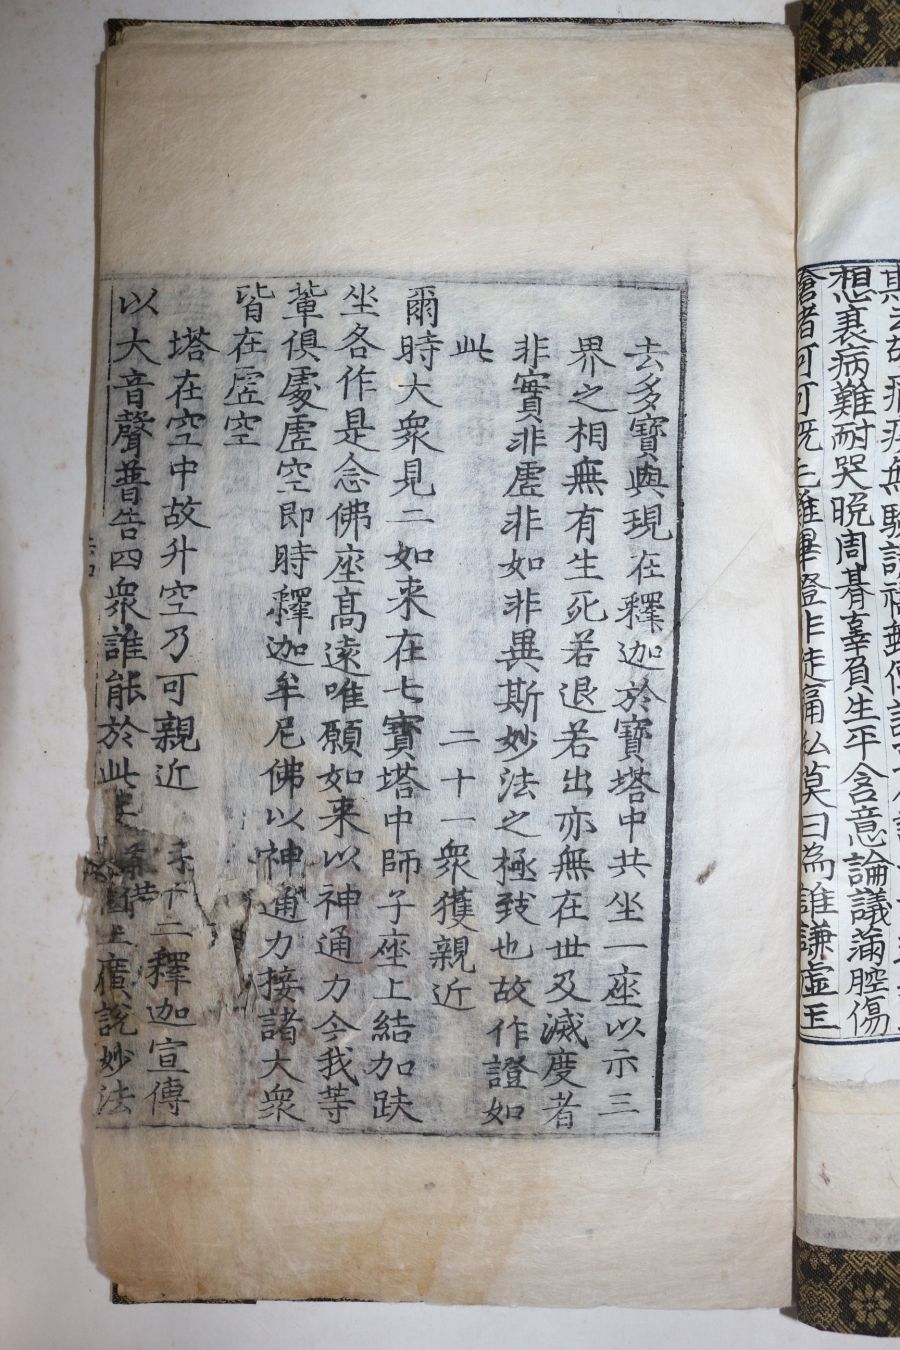 想裏病難耐哭晚周朞辜負生平含意論議滿腔傷
去多寶與現在釋迦於寶塔中共坐一座以示三
界之相無有生死若退若出亦無在世及滅度者
非實非虛非如非異斯妙法之極致也故作證如
此 二十一衆獲親近
爾時大衆見二如来在七寶塔中師子座上結加趺
坐各作是念佛座高遠唯願如来以神通力令我等
輩俱處虛空即時釋迦牟尼佛以神通力接諸大衆
皆在虛空
塔在空中故升空乃可親近 二釋迦宣傳
以大音聲普告四衆誰能於此 廣說妙法